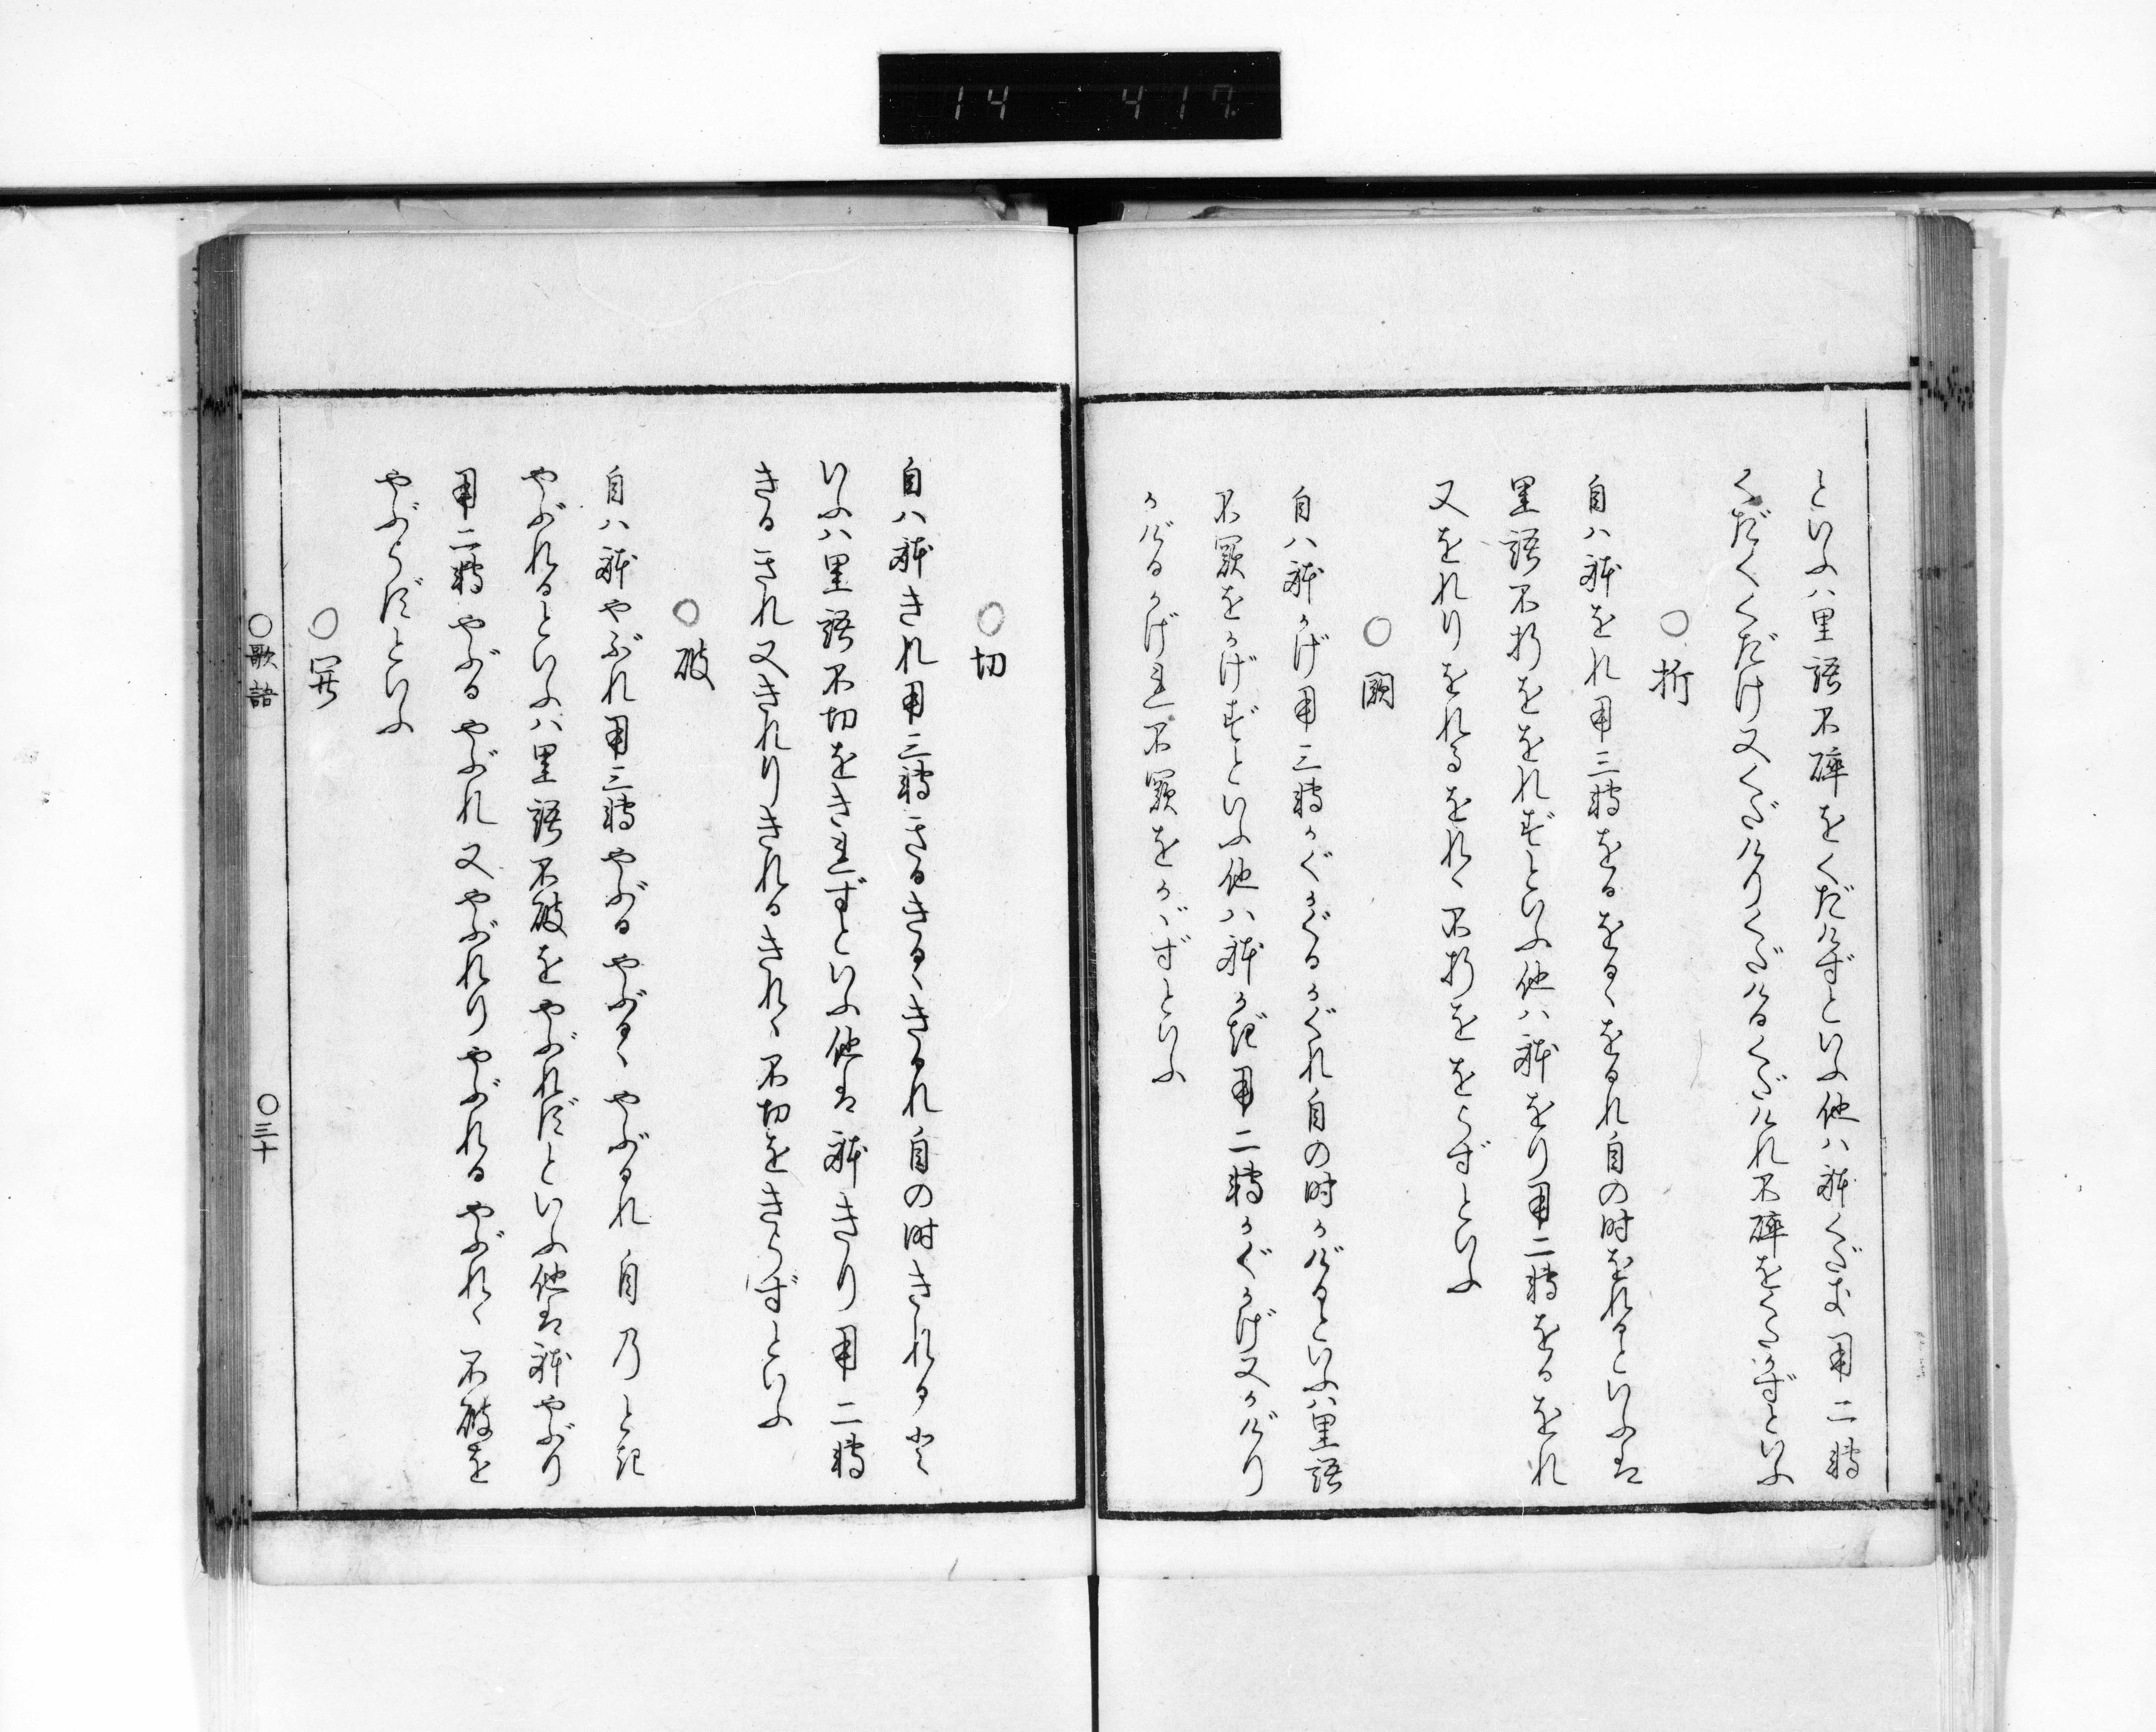 14 417
といふハ里語不碎をくだけずといふ他ハ躰くだき用二轉
くだくくだけ又くだけりくだけるくだけれ不碎をくだかずといふ
○折
自ハ躰をれ用三轉をるをるゝをるれ自の時をれるといふは
里語不折ををれずといふ他ハ躰をり用二轉をるをれ
又をれりをれるをれゝ不折ををらずといふ
○闕
自ハ躰かけ用三轉かくかくるかくれ自の時かけるといふハ里語
不闕をかけずといふ他ハ躰かき用二轉かくかけ又かけり
かけるかけれ不闕をかかずといふ
○切
自ハ躰きれ用三轉きるきるゝきるれ自の時きれると
いふハ里語不切をきれずといふ他は躰きり用二轉
きるきれ又きれりきれるきれゝ不切をきらずといふ
○破
自ハ躰やぶれ用三轉やぶるやぶるゝやぶるれ自乃とき
やぶれるといふハ里語不破をやぶれずといふ他は躰やぶり
用二轉やぶるやぶれ又やぶれりやぶれるやぶれゝ不破を
やぶらずといふ
○開
○歌語
○三十